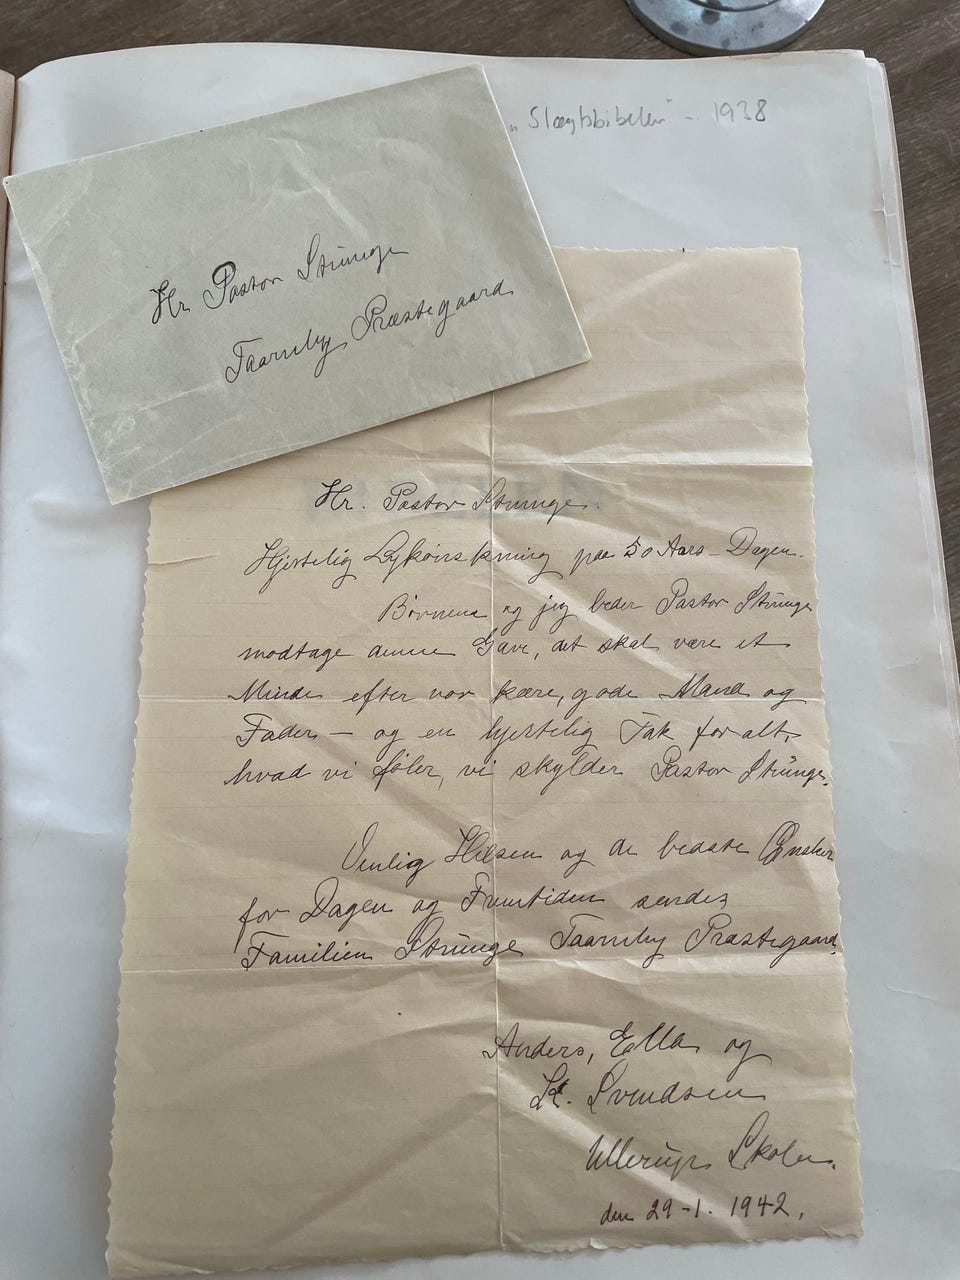 "Slægtsbibelen" - 1938
Hr. Pastor Strunge
Taarnby Præstegaard
Hr. Pastor Strunge.
Hjertelig Lykønskning paa 50 Aars-Dagen.
Børnene og jeg beder Pastor Strunge
modtage denne Gave, det skal være et
Minde efter vor kære, gode Mand og
Fader – og en hjertelig Tak for alt,
hvad vi føler, vi skylder Pastor Strunge.
Venlig Hilsen og de bedste Ønsker
for Dagen og Fremtiden sendes
Familien Strunge Taarnby Præstegaard.
Anders, Ella og
K. Svendsen
Ullerup Skole.
den 29-1. 1942.